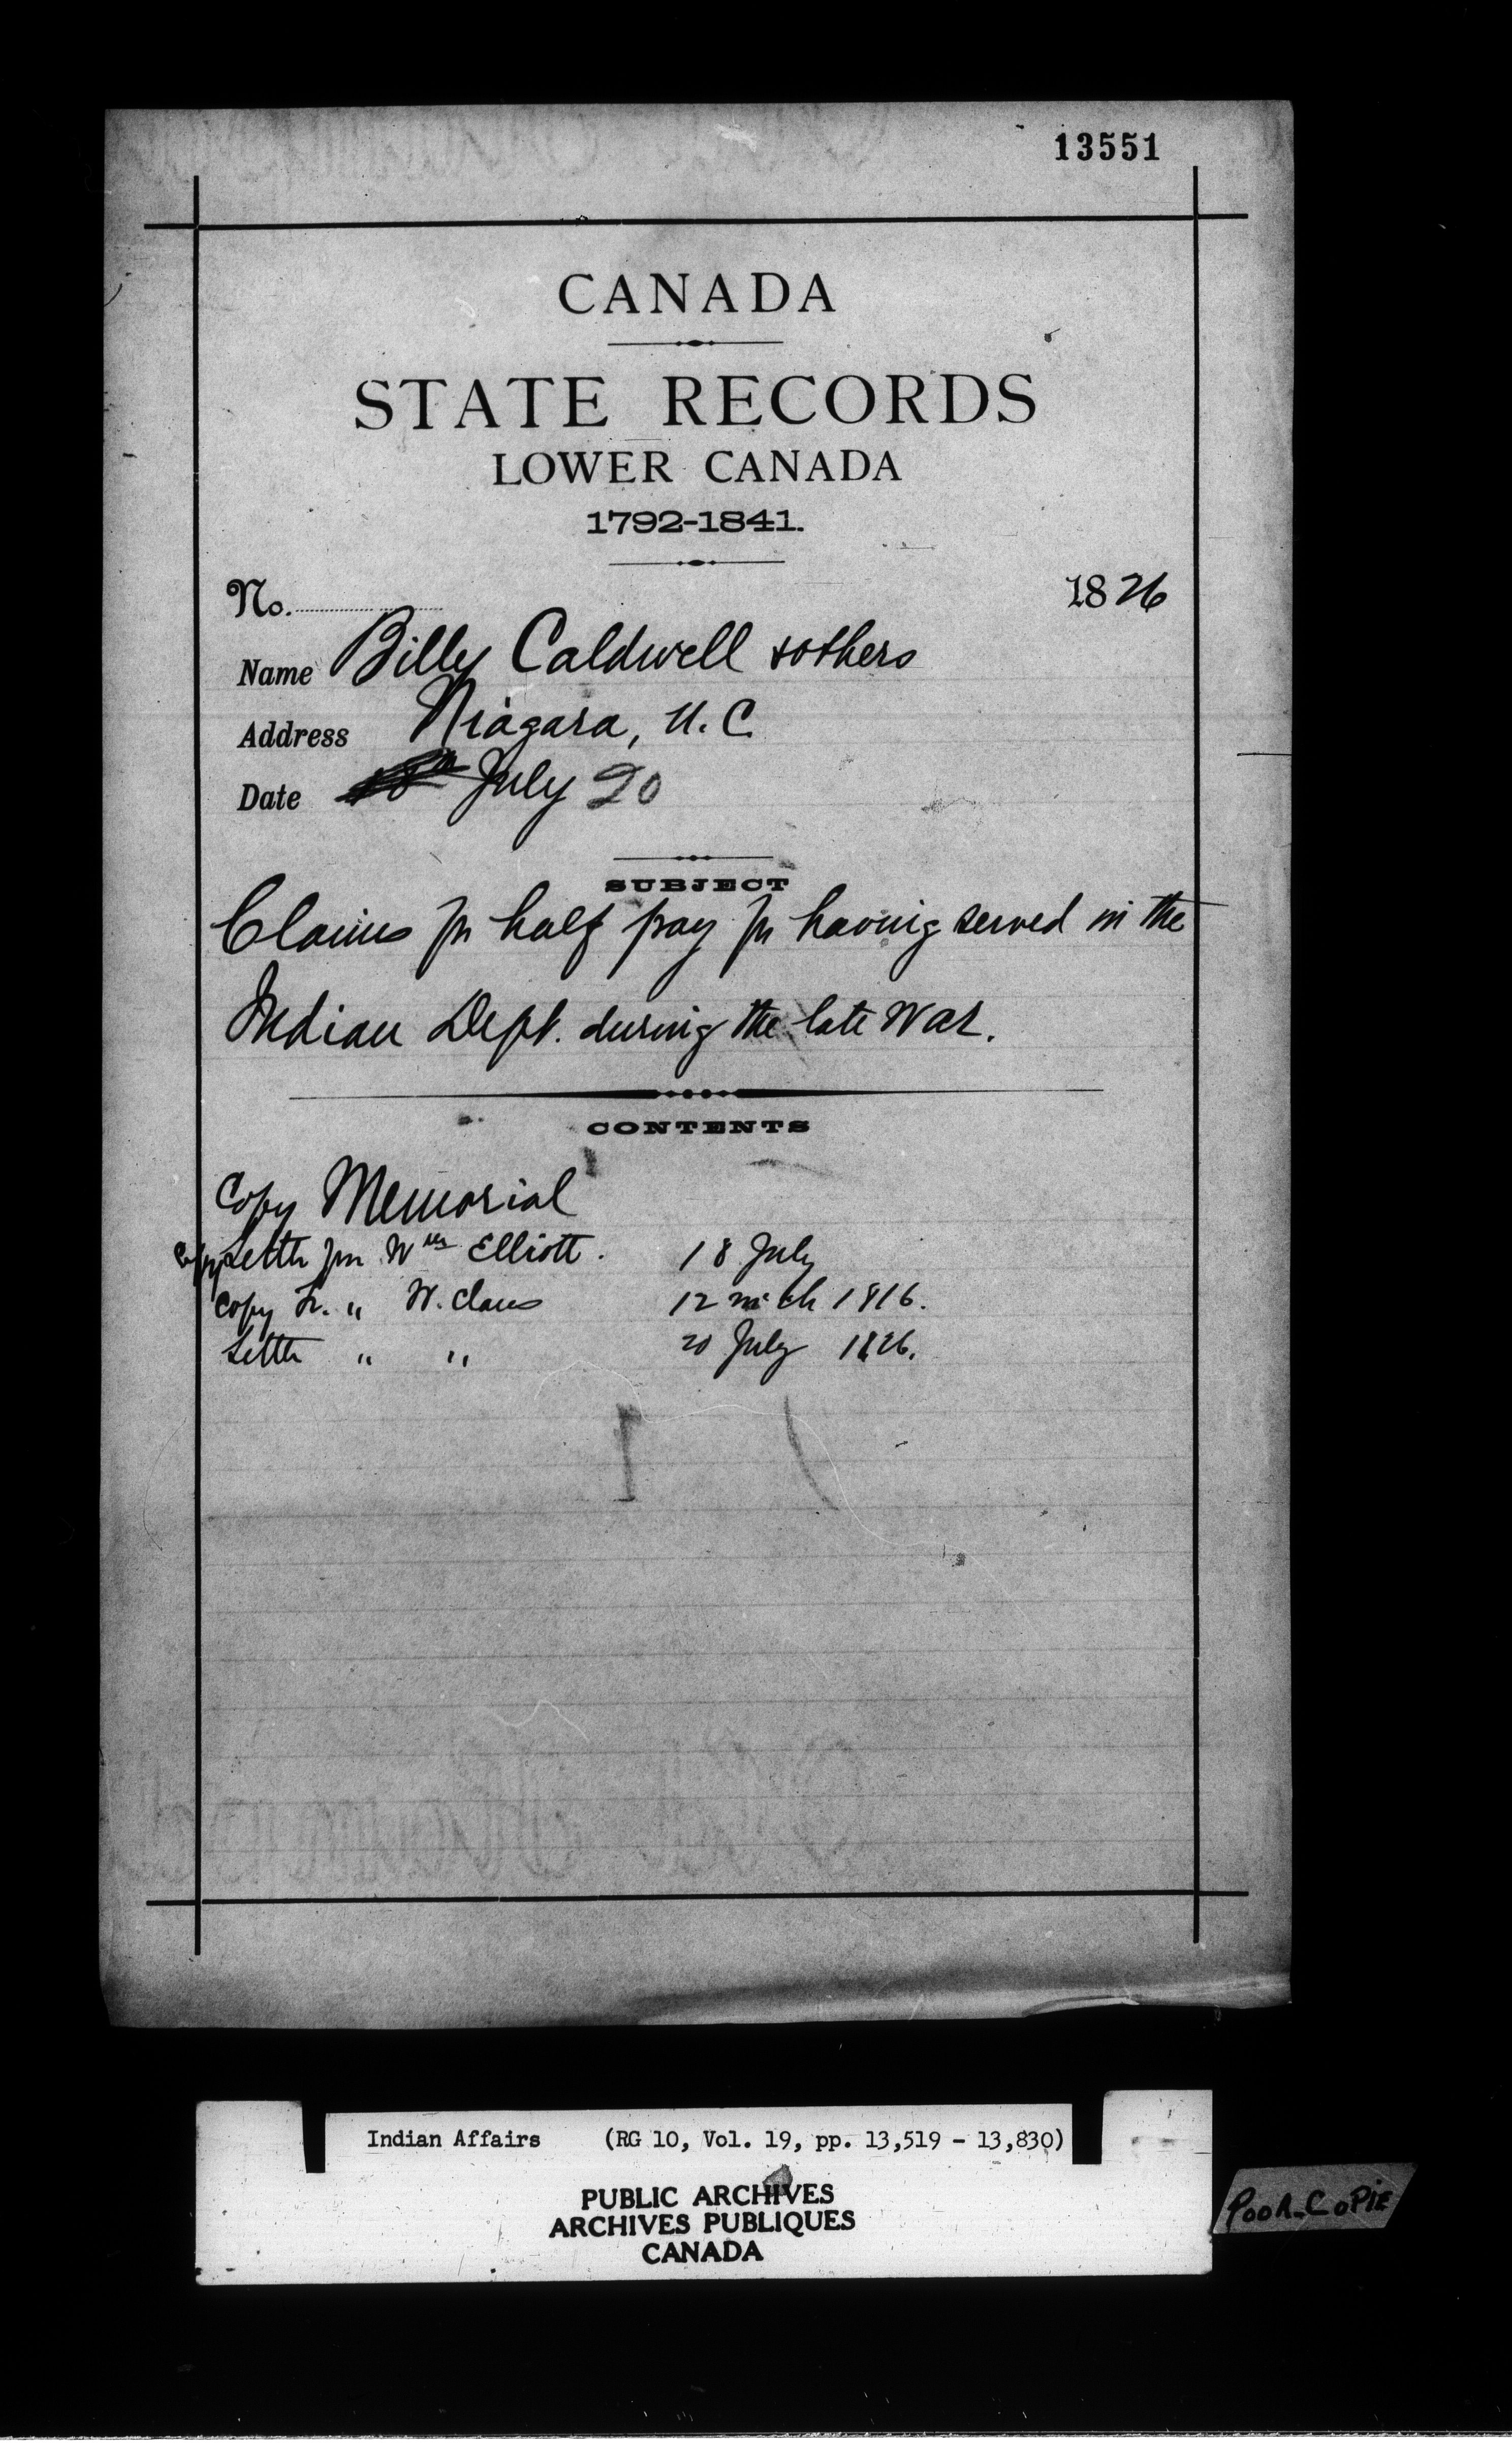 13551
CANADA
STATE RECORDS
LOWER CANADA
1792-1841.
No. 1826
Name Billy Caldwell & others
Address Niagara, U.C.
Date July 20
SUBJECT
Claims for half pay for having served in the
Indian Dept. during the late War.
CONTENTS
Copy Memorial
Copy Letter fm Wm Elliott. 18 July
Copy Lr. " W. Claus 12 mch 1816.
Letter " " 20 July 1826.
Indian Affairs (RG 10, Vol. 19, pp. 13,519 - 13,830)
PUBLIC ARCHIVES
ARCHIVES PUBLIQUES
CANADA
POOR COPIE